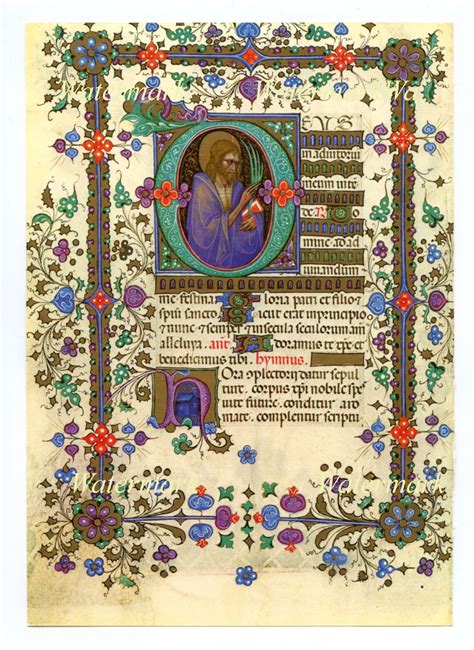 Watermark
DEUS
in adiutoriu
meum inte
de. Do
mine ad ad
iuuandum
me festina. Gloria patri et filio &
spiui sancto. Sicut erat in principio
& nunc & semper & in secula seculorum am
alleluya. ant. Adoramus te xpe et
benedicimus tibi. hymnus.
Hora 9plectorij datur sepul
ture. corpus xpi nobile spe
uite future. conditur aro
mate. complentur scriptu.
Watermark
Watermark